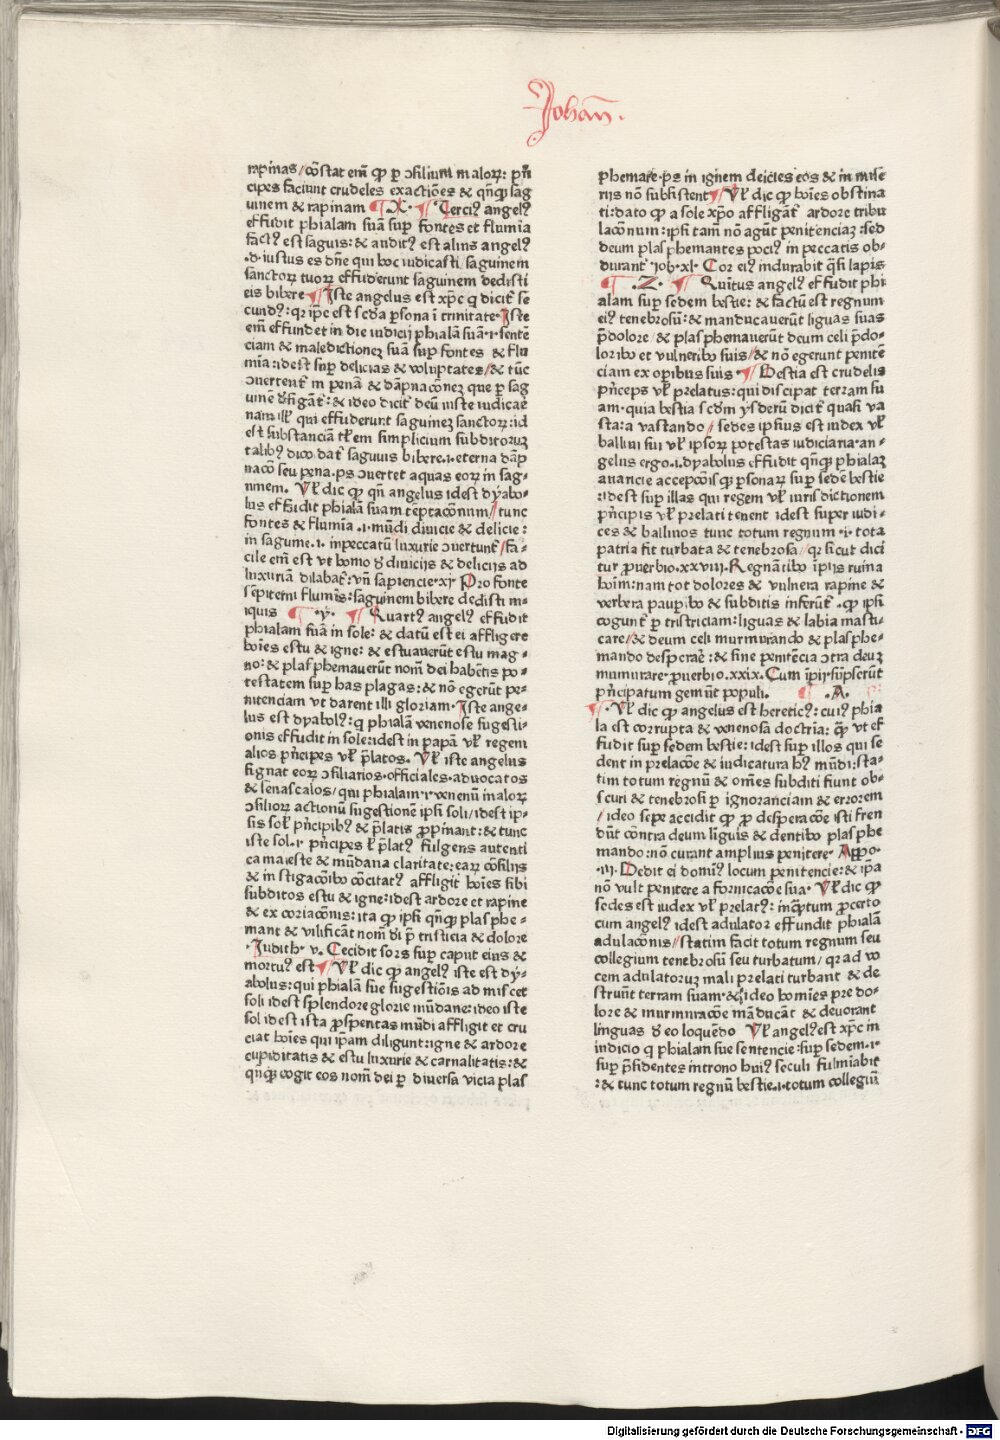 Johan̄.
rapinas/cōstat em̄ ꝙ ꝑ ↄsilium maloꝝ: pn̄
cipes faciunt crudeles exactiōes & qn̄ꝙ sag
uinem & rapinam ¶ .X. ¶ Tercius angelꝰ
effudit phialam suā sup fontes et flumīa
factꝰ est saguis: & auditꝰ est alius angelꝰ
.d. iustus es dn̄e qui hoc iudicasti saguinem
sanctoꝝ tuoꝝ effuderunt saguinem dedisti
eis bibere ¶ Iste angelus est xp̄c q dicit̄ se
cundꝰ: qꝛ ip̄e est scd̄a ꝑsona ī trinitate. Iste
em̄ effundet in die iudicij phialā suā .i. sentē
ciam & malediction​eꝫ suā sup fontes & flu
mīa: idest sup delicias & voluptates/& tūc
ↄuertent̄ in penā & dāpnacōneꝫ que ꝑ sag
uinē d̄signāt̄: & ideo dicit̄ deū iuste iudicaē
nam ill̄ qui effuderunt saguineꝫ sanctoꝝ: id
est substanciā tl̄em simplicium subditoruꝫ
talibꝰ dico dat̄ saguis bibere .i. eterna dāp
nacō seu pena. ps ↄuertet aquas eoꝝ in sag-
uinem. Vl̄ dic ꝙ qn̄ angelus idest dyabo-
lus effudit phialā suam tēptacōnum/tunc
fontes & flumīa .i. mūdi diuicie & delicie:
in saguine .i. in peccatū luxurie ↄuertunt̄/fa-
cile em̄ est vt homo ꝺ diuicijs & delicijs ad
luxuriā dilabat̄: vn̄ sapiencie .xj. Pro fonte
sēpiterni flumīs: saguinem bibere dedisti in-
iquis ¶ .y. ¶ Quartꝰ angelꝰ effudit
phialam suā in sole: & datū est ei affligere
hoīes estu & igne: & estuauerūt estu mag-
no: & plasphemauerūt nom̄ dei habētis po-
testatem sup has plagas: & nō egerūt pe-
nitenciam vt darent illi gloriam. Iste ange-
lus est dyabolꝰ: q phialā venenose sugesti-
onis effudit in sole: idest in papā vl̄ regem
alios pn̄cipes vl̄ p̄latos. Vl̄ iste angelus
signat eoꝝ ↄsiliarios. officiales. aduocatos
& senascalos/qui phialam .i. venenū maloꝝ
ↄsilioꝝ actionū sugestionē ipsi soli/idest ip-
sis sol̄ pn̄cipibꝰ & p̄latis ꝓpinant: & tunc
iste sol .i. pn̄cipes l̄ p̄latꝰ fulgens autenti
ca maieste & mūdana claritate: eaꝝ cōsilijs
& instigacōibo cōcitatꝰ affligit hoīes sibi
subditos estu & igne: idest ardore et rapine
& excoriacōnis: ita ꝙ ipsi qn̄ꝙ plasphe-
mant & vilificāt nom̄ di p̄ tristicia & dolore
.Judith. v. Cecidit sors sup caput eius &
mortuꝰ est ¶ Vl̄ dic ꝙ angelꝰ iste est dy-
abolus: qui phialā sue sugestiōis ad miscet
soli idest splendore glorie mūdane: ideo iste
sol idest ista ꝓspentas mūdi affligit et cru
ciat hoīes qui ipam diligunt: igne & ardore
cupiditatis & estu luxurie & carnalitatis: &
qn̄ꝙ cogit eos nom̄ dei ꝑ diuersa vicia plas
phemare. ps in ignem deicies eos & in mise
rijs nō subsistent ¶ Vl̄ dic ꝙ hoīes obstina
ti: dato ꝙ a sole xp̄o affligāt̄ ardore tribu
lacōnum: ipsi tam̄ nō agūt penitenciaꝫ: sed
deum plasphemantes pociꝰ in peccatis ob-
durant̄ Iob. xl. Cor eiꝰ indurabit qsi lapis
¶ .Z. ¶ Quītus angelꝰ effudit phi
alam sup sedem bestie: & factū est regnum
eiꝰ tenebrosū: & manducauerūt liguas suas
p̄dolore/& plasphemauerūt deum celi p̄do-
loribo et vulneribo suis/& nō egerunt penitē
ciam ex opibus suis. ¶ Bestia est crudelis
pn̄ceps vl̄ prelatus: qui discipat terram su
am. quia bestia scdm ysderū dicit̄ quasi va
sta: a vastando/sedes ipsius est iudex vl̄
balliui sui vl̄ ipsoꝝ potestas iudiciaria. an-
gelus ergo .i. dyabolus effudit qn̄ꝙ phialaꝫ
auaricie accepcōis ꝙ ꝑsonaꝝ sup sedē bestie
: idest sup illas qui regem vl̄ iurisdictionem
pn̄cipis vl̄ prelati tenent idest super iudi-
ces & balliuos tunc totum regnum .i. tota
patria fit turbata & tenebrosa/qꝛ sicut dici
tur ꝓuerbio. xxviii. Regnātibo īpijs ruina
hoīm: nam tot dolores & vulnera rapine &
verbera paupibo & subditis inferūt̄. ꝙ ipsi
cogunt̄ ꝑ tristriciam: liguas & labia masti-
care/& deum celi murmurando & plasphe-
mando desperaē: & sine penitēcia ↄtra deuꝫ
murmurare. ꝓuerbio. xxix. Cum īpij sūpserūt
pn̄cipatum gemūt populi. ¶ .A.
¶ Vl̄ dic ꝙ angelus est hereticꝰ: cuiꝰ phia
la est corrupta & venenosa doctrīa: ꝙ̄ vt ef
fudit sup sedem bestie: idest sup illos qui se
dent in prelacōe & iudicatura hꝰ mūdi: sta-
tim totum regnū & om̄es subditi fiunt ob-
scuri & tenebrosi ꝑ ignoranciam & errorem
/ideo sepe accidit ꝙ ꝓ desperacōe isti fren
dūt cōntra deum līguis & dentibo plasphe
mando: nō curant amplius penitere. Appo.
.iii. Dedit ei dominꝰ locum penitencie: & ip̄a
nō vult penitere a fornicacōe sua. Vl̄ dic ꝙ
sedes est iudex vl̄ prelatꝰ: inꝙtum ꝓcerto
cum angelꝰ idest adulator effundit phialā
adulacōnis/statim facit totum regnum seu
collegium tenebrosū seu turbatum/qꝛ ad vo
cem adulatoruꝫ mali prelati turbant & de
strunt terram suam. & ideo homīes pre do-
lore & murmuracōe māducāt & deuorant
linguas ꝺ eo loquēdo Vl̄ angelꝰ est xp̄c in
iudicio q phialam sue sentencie: sup sedem .i.
sup p̄sidentes in trono huiꝰ seculi fulmīabit
: & tunc totum regnū bestie .i. totum collegiū
Digitalisierung gefördert durch die Deutsche Forschungsgemeinschaft - DFG